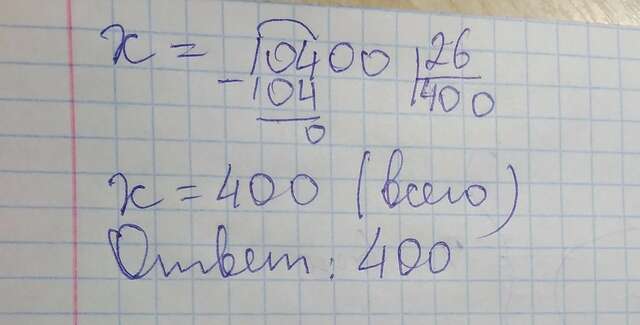 x = 10400 26
- 104 400
0
x = 400 (всего)
Ответ: 400